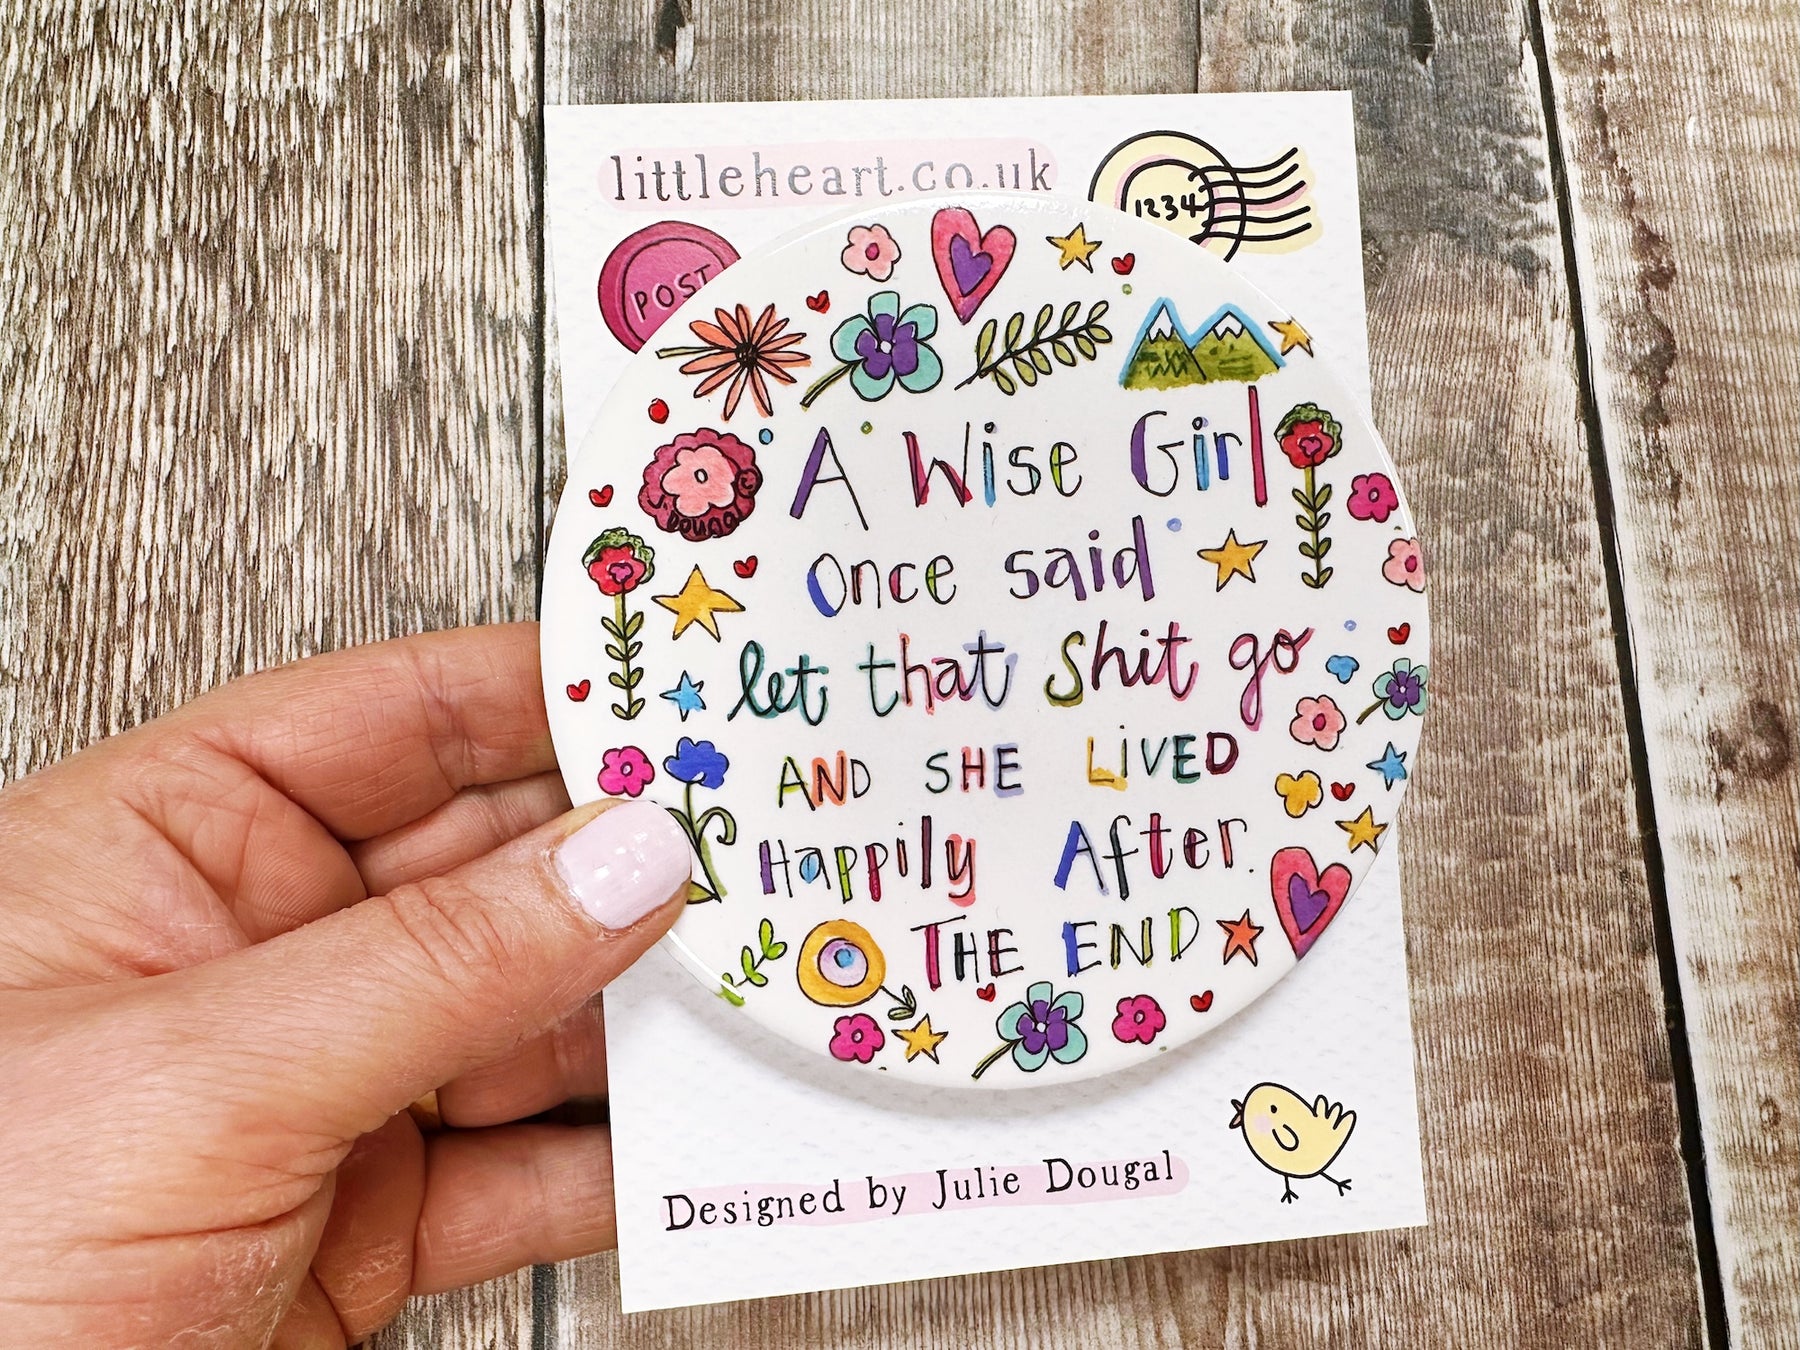 littleheart.co.uk
1234
POST
Dougal
A Wise Girl
once said
let that shit go
AND SHE LIVED
Happily After.
THE END
Designed by Julie Dougal